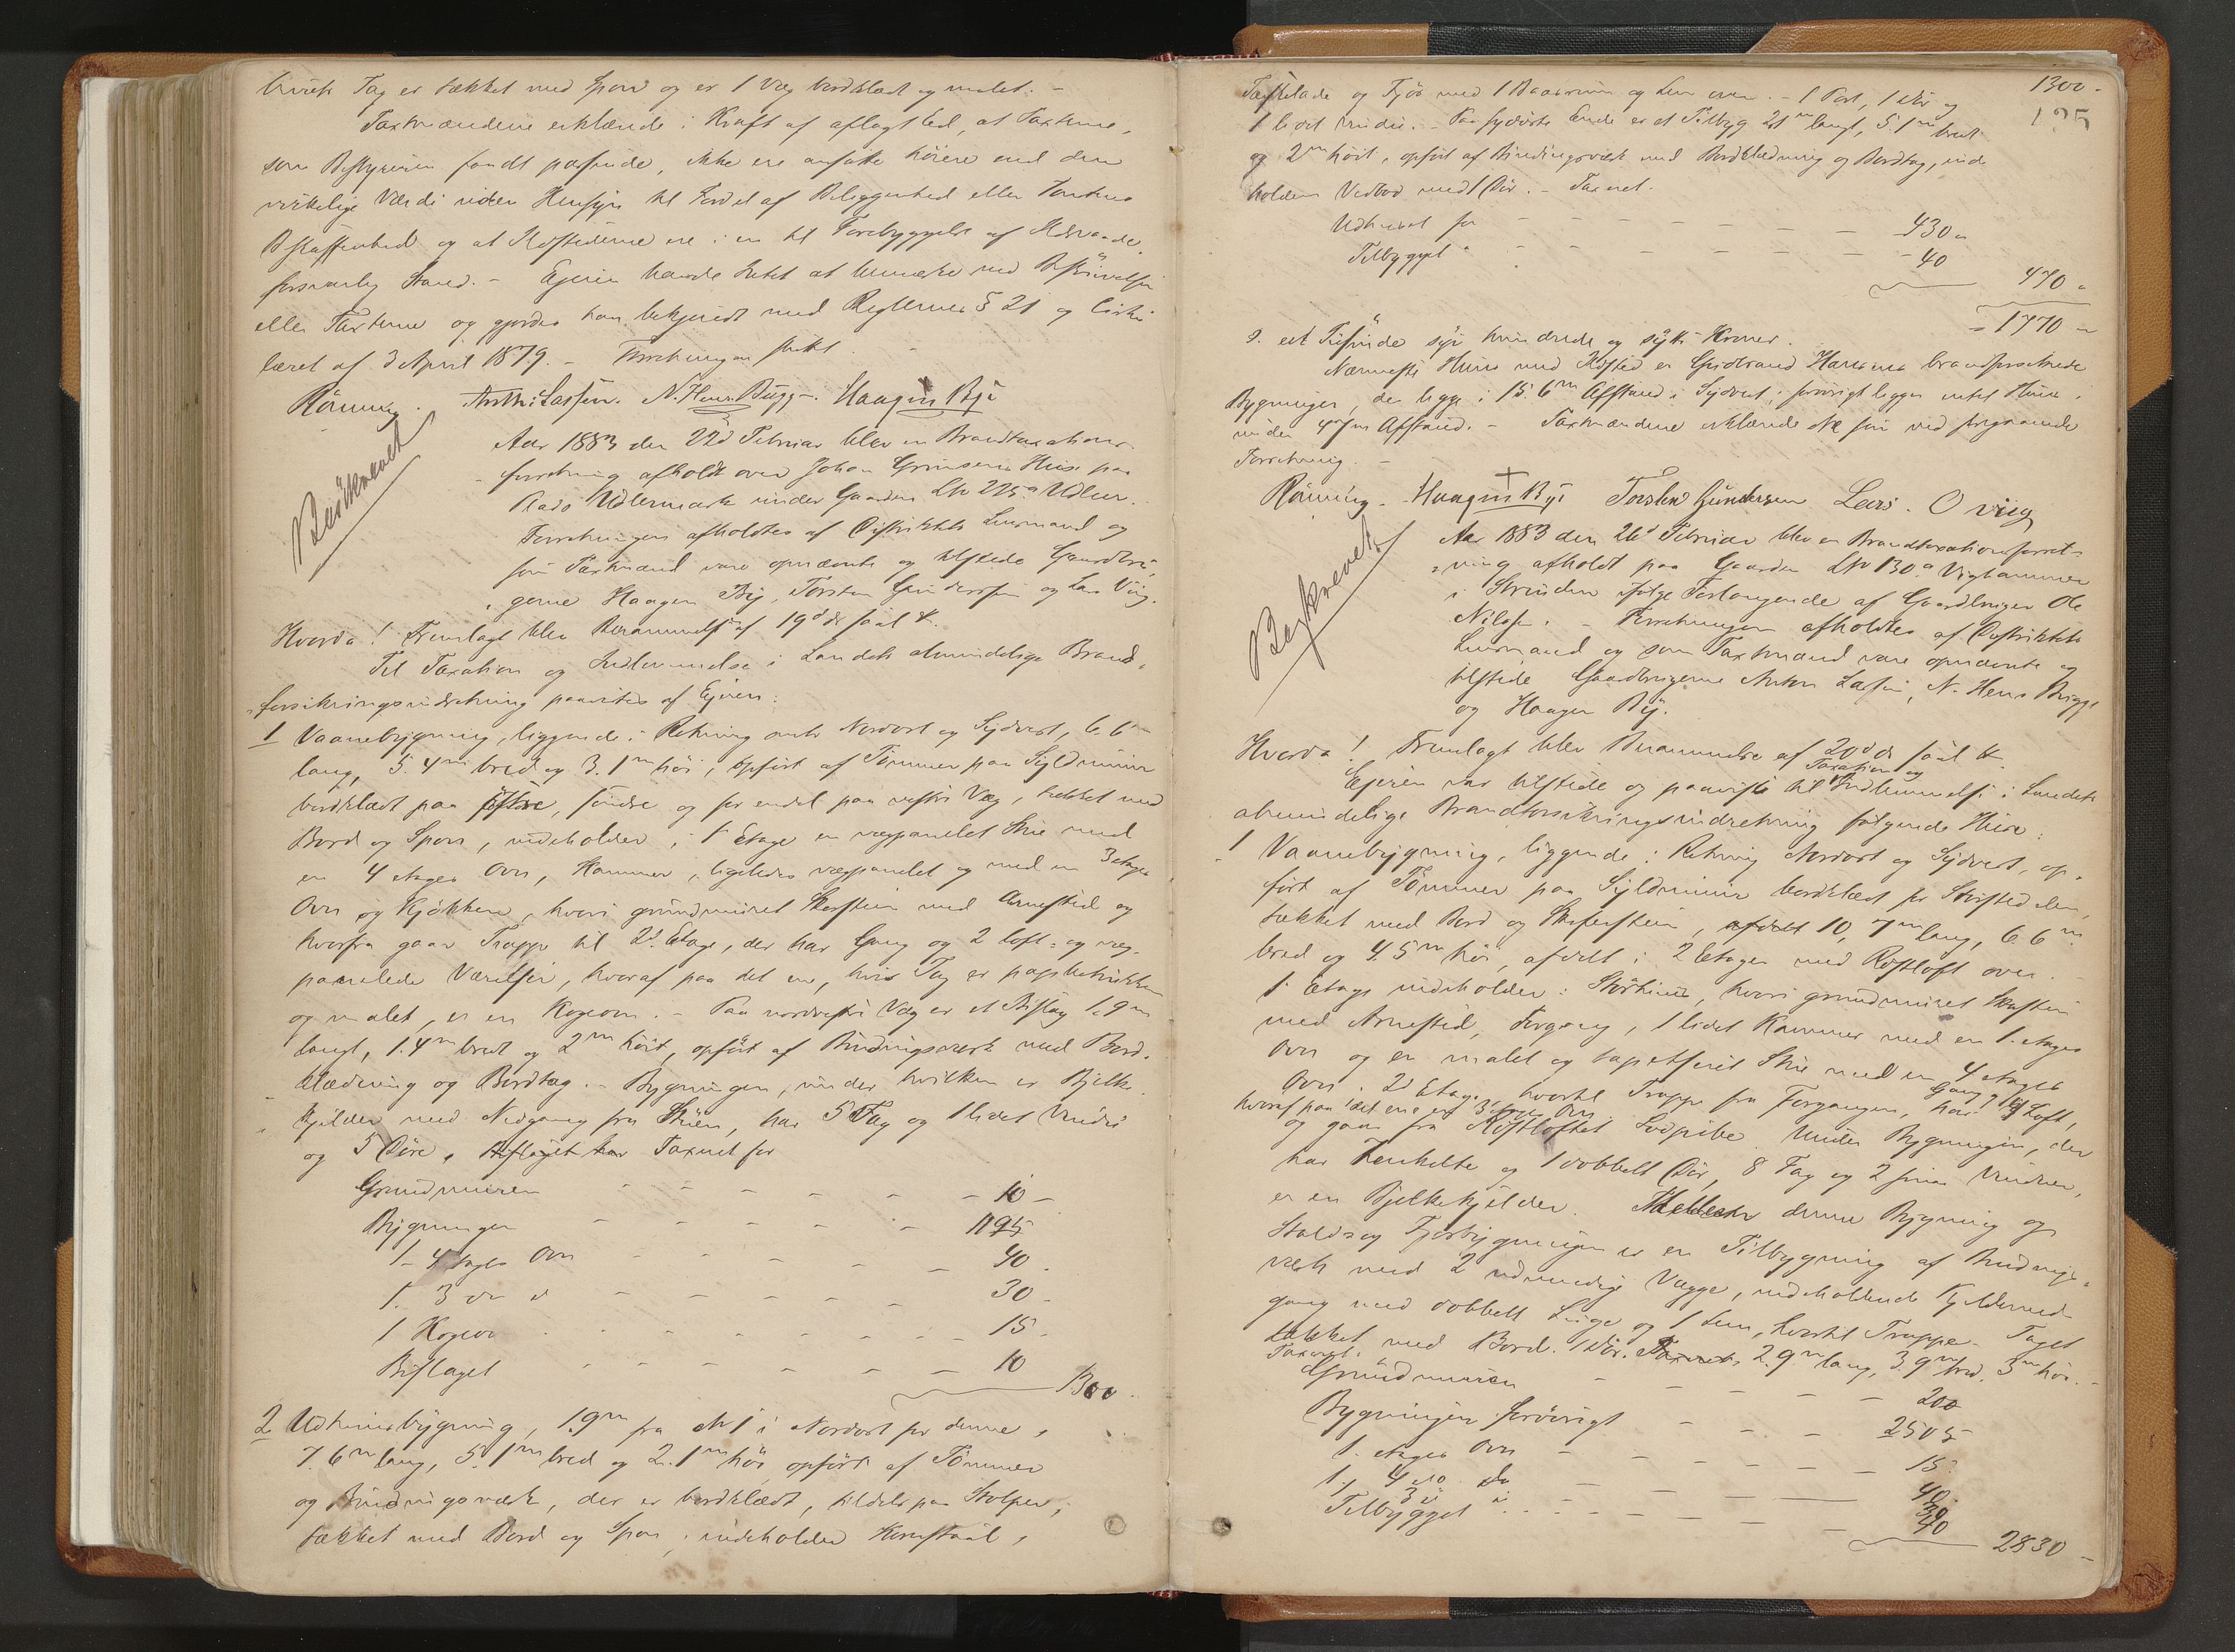 Tag er tækket med Spon og er 1 Væg bordklædt og malet. –
Taxtmændene erklærede i Kraft af aflagt Ed, at Taxterne,
som Bestyreren fandt passende, ikke ere ansatte höiere end den
virkelige Værdi uden Hensyn til Fordel af Beliggenhed eller Tomtens
Beskaffenhed og at Ildstederne ere i en til Forebyggelse af Ildsvaade
forsvarlig Stand. – Ejeren havde Intet at bemærke ved Beskrivelsen
eller Taxterne og gjordes han bekjendt med Reglernes § 21 og Cirku
læret af 3 April 1879. – Forretningen sluttet.
Rönning. Anth: Lassen. N. Hens. Bügge. Haagen Bÿe
Beskrevet
Aar 1883 den 22d Februar blev en Brandtaxations-
forretning afholdt over Johan Grinsens Huse paa
Udlermark under Gaarden LNo 225a Udler.
Forretningen afholdtes af Distriktets Lensmand og
som Taxtmænd vare opnævnte og tilstede Gaardbru-
gerne Haagen Bÿ, Torsten Gundersen og Lars Viig.
Hvorda! Fremlagt blev Berammelse af 19d ds saal. &.
Til Taxation og Indlemmelse i Landets almindelige Brand-
forsikringsindretning paavistes af Ejeren:
1 Vaanebygning, liggende i Retning omtr Nordost og Sydvest, 6.6m
lang, 5.4m bred og 3.1m höi, opfört af Tömmer paa Syldmuur
bordklædt paa östre, söndre og for endel paa vestre Væg, tækket med
Bord og Spon, indeholder i 1 Etage en vægpanelet Stue med
en 4 etages Ovn, Kammer, ligeledes vægpanelet og med en 3 etages
Ovn og Kjökken, hvori grundmuret Skorsten med Arnested og
hvorfra gaar Trappe til 2d Etage, der har Gang og 2 loft- og væg-
panelede Værelser, hvoraf paa det ene, hvis Tag er papbetrukken
og malet, er en Kogeovn. – Paa nordvestre Væg er et Bislag 1.9m
langt, 1.4m bredt og 2m höit, opfört af Bindingsværk med Bord-
klædning og Bordtag. – Bygningen, under hvilken er Bjelke-
kjelder med Nedgang fra Stuen, har 5 Fag og 1 lidet Vindu
og 5 Döre. Bislaget har Taxeret for
Grundmuren – – – – – – 10 –
Bygningen – – – – – – 1195
1– 4 etages Ovn – – – – – 40
1. 3 do do – – – – – – 30 –
1 Kogeovn – – – – – – 15 –
Bislaget – – – – – – 10
1300 –
2 Udhuusbÿgning, 1.9m fra No 1 i Nordost for denne,
7.6m lang, 5.1m bred og 2.1m höi, opfört af Tömmer
og Bindingsværk, der er bordklædt, tildels paa Stolper,
tækket med Bord og Spon, indeholder Kornstaal,
1300 –
125
Tærskelade og Fjös med 1 Baasrum og Lem over. – 1 Port, 1 Dör og
1 lidet Vindu. – Paa sydöstre Ende er et Tilbyg 2.1m langt, 5.1m bredt
og 2m höit, opfört af Bindingsværk med Bordklædning og Bordtag, inde
holdem Vedbod med 1 Dör. – Taxeret.
Udhuset for – – – – – – 430 „
Tilbygget „ – – – – – – 40
470 „
= 1770 –
et Tusinde syv hundrede og sytti Kroner.
Nærmeste Huus med Ildsted er Gudbrand Hansens brandforsikrede
Bygninger, der ligge i 15.6m Afstand i Sydvest; forövrigt ligger intet Huus
under Afstand. – Taxtmændene erklærede No som ved foregaaende
Forretning. –
Rönning. Haagen Bÿe Torsten Gündersen Lars. O viig
Beskrevet
Aar 1883 den 26d Februar blev en Brandtaxationsforret-
ning afholdt paa Gaarden LNo 130a Vighammer
i Strinden ifölge Forlangende af Gaardbruger Ole
Nilssen. – Forretningen afholdtes af Distriktets
Lensmand og som Taxtmænd vare opnævnte og
tilstede Gaardbrugerne Anton Lassen, N. Hens Bugge
og Haagen Bÿ.
Hvorda! Fremlagt blev Berammelse af 20d ds saal. &.
Ejeren var tilstede og paaviste til Taxation og Indlemmelse i Landets
almindelige Brandforsikringsindretning fölgende Huse:
1 Vaanebÿgning, liggende i Retning Nordost og Sydvest, op-
fört af Tömmer paa Syldmuur bordklædt for Störstedelen,
tækket med Bord og Skifersten, afdelt 10,7m lang, 6.6m
bred og 4.5m höi, afdelt i 2 Etager med Röstloft over. –
1 Etage indeholder: Störhuus, hvori grundmuret Skorsten
med Arnested, Forgang, 1 lidet Kammer med en 1. etages
Ovn og en malet og tapetseret Stue med en 4 etages
Ovn. 2d Etage, hvortil Trappe fra Forgangen, har Gang og Loft,
hvoraf paa det ene en 3 etages Ovn
og gaar fra Röstloftet Lodpibe. Under Bygningen, der
har enkelte og 1 dobbelt Dör, 8 Fag og 2 smaa Vinduer,
er en Bjelkekjelder. Mellem denne Bygning og
Stald og Fjösbygningen er en Tilbygning af Bindings-
værk med 2 udvendige Vægge, indeholdende Kjeldernedgang
med dobbelt Luge og 1 Lem, hvortil Trappe. Taget
tækket med Bord. 1 Dör. Taxeret 2.9m lang, 3.9m bred, 3m höi. –
Taxeret.
Grundmuren – – – – – 200
Bygningen forövrigt – – – – 2505
1. etages Ovn – – – – – 15
1. 4 do do – – – – 40.
3 d d – – – 30
Tilbygget – – – – – – 40
2830 –